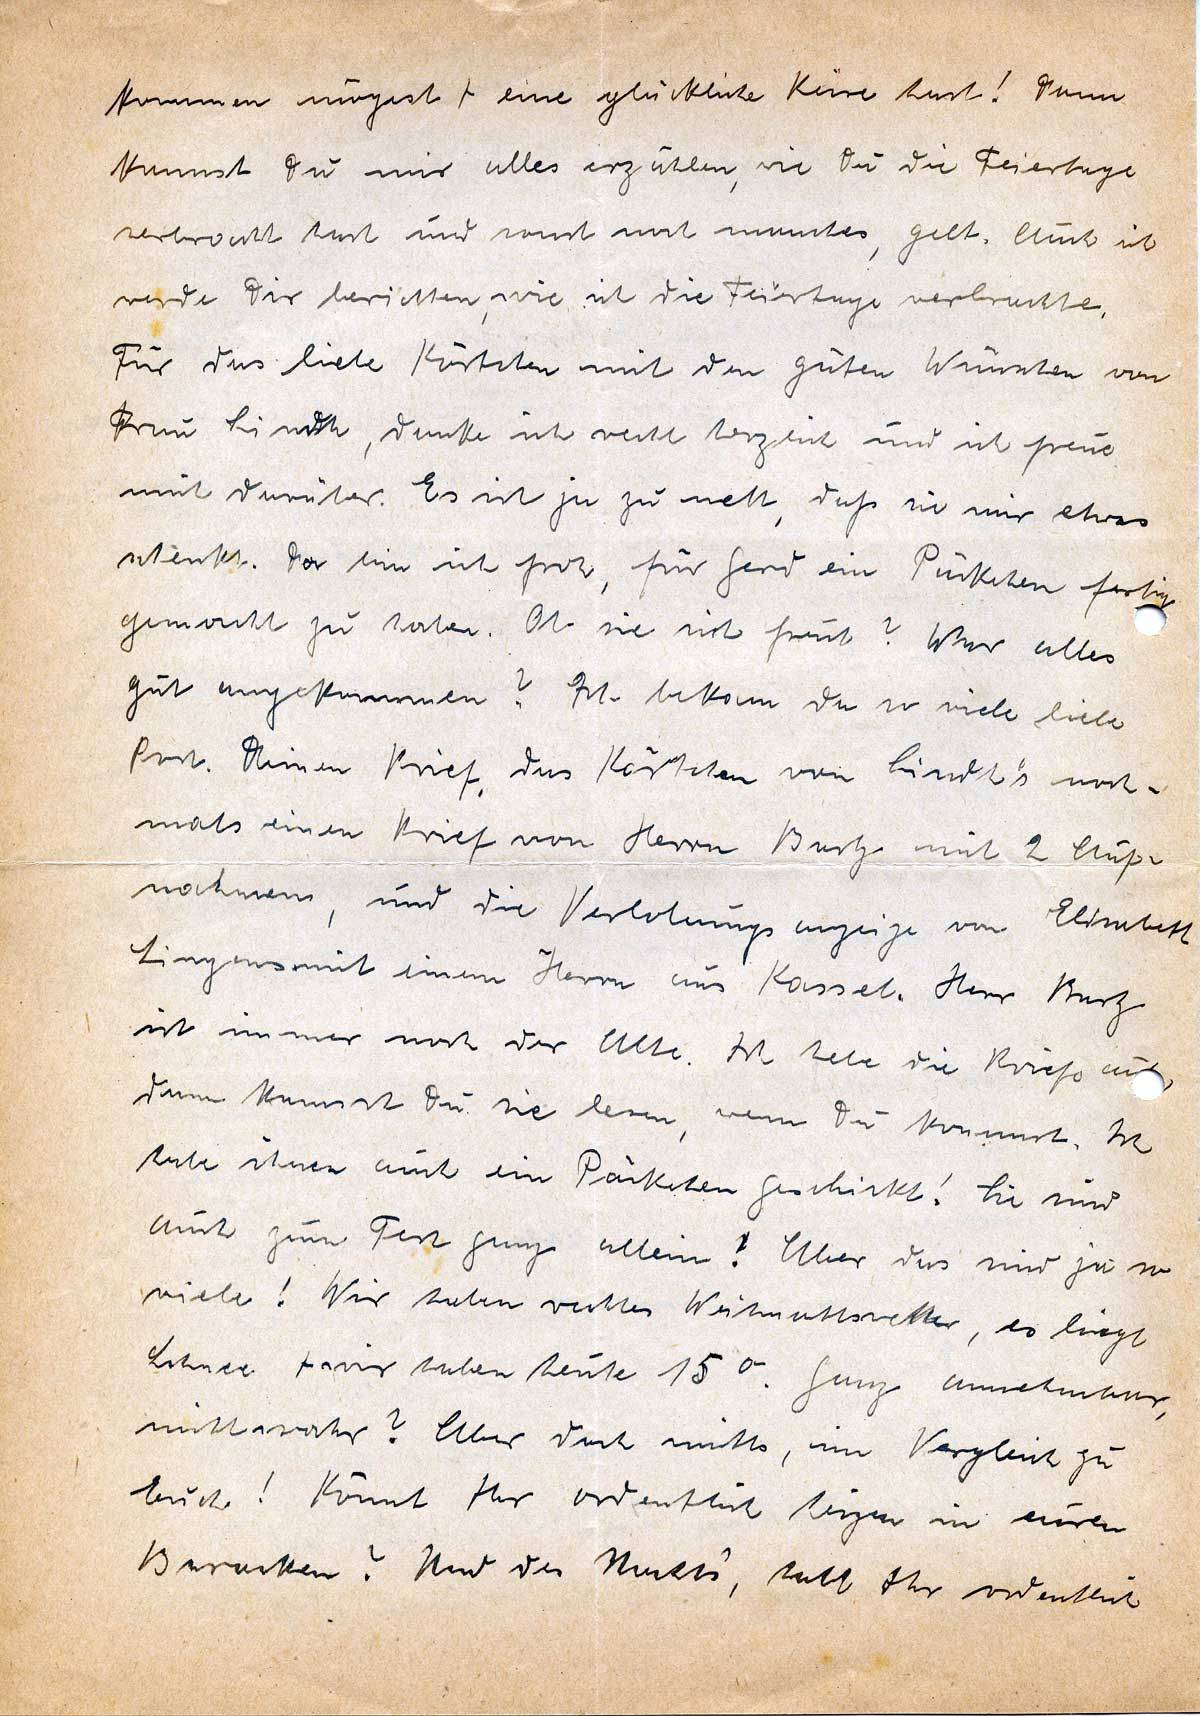 kommen mögest + eine glückliche Reise hast! Dann
kannst Du mir alles erzählen, wie Du die Feiertage
verbracht hast und sonst noch manches, gelt. Auch ich
werde Dir berichten, wie ich die Feiertage verbrachte.
Für das liebe Kärtchen mit den guten Wünschen von
Frau Lindth, danke ich recht herzlich und ich freue
mich darüber. Es ist ja zu nett, daß sie mir etwas
schenkt. Da bin ich froh, für Gerd ein Päckchen fertig
gemacht zu haben. Ob sie sich freut? War alles
gut angekommen? Ich bekam da so viele liebe
Post. Deinen Brief, das Kärtchen von Lindth's noch-
mals einen Brief von Herrn Bartz mit 2 Auf-
nahmen, und die Verlobungsanzeige von Elisabeth
Lingens mit einem Herrn aus Kassel. Herr Bartz
ist immer noch der Alte. Ich hebe die Briefe auf,
dann kannst Du sie lesen, wenn Du kommst. Ich
habe ihnen auch ein Päckchen geschickt! Sie sind
auch zum Fest ganz allein! Aber das sind ja so
viele! Wir haben rechtes Weihnachtswetter, es liegt
Schnee + wir haben heute 15°. Ganz annehmbar,
nicht wahr? Aber doch nichts, im Vergleich zu
Euch! Könnt Ihr ordentlich heizen in euren
Baracken? Und des Nachts, habt Ihr ordentlich